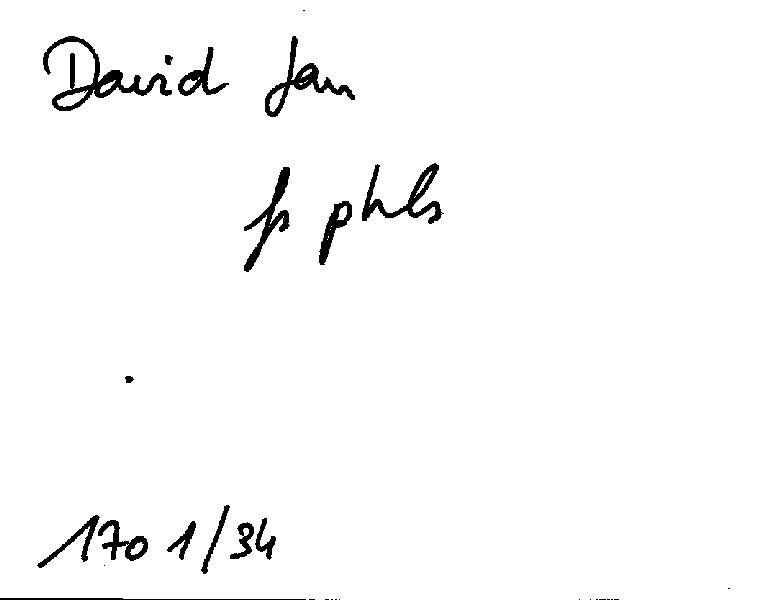 David Jan
fs phls
170 1/34